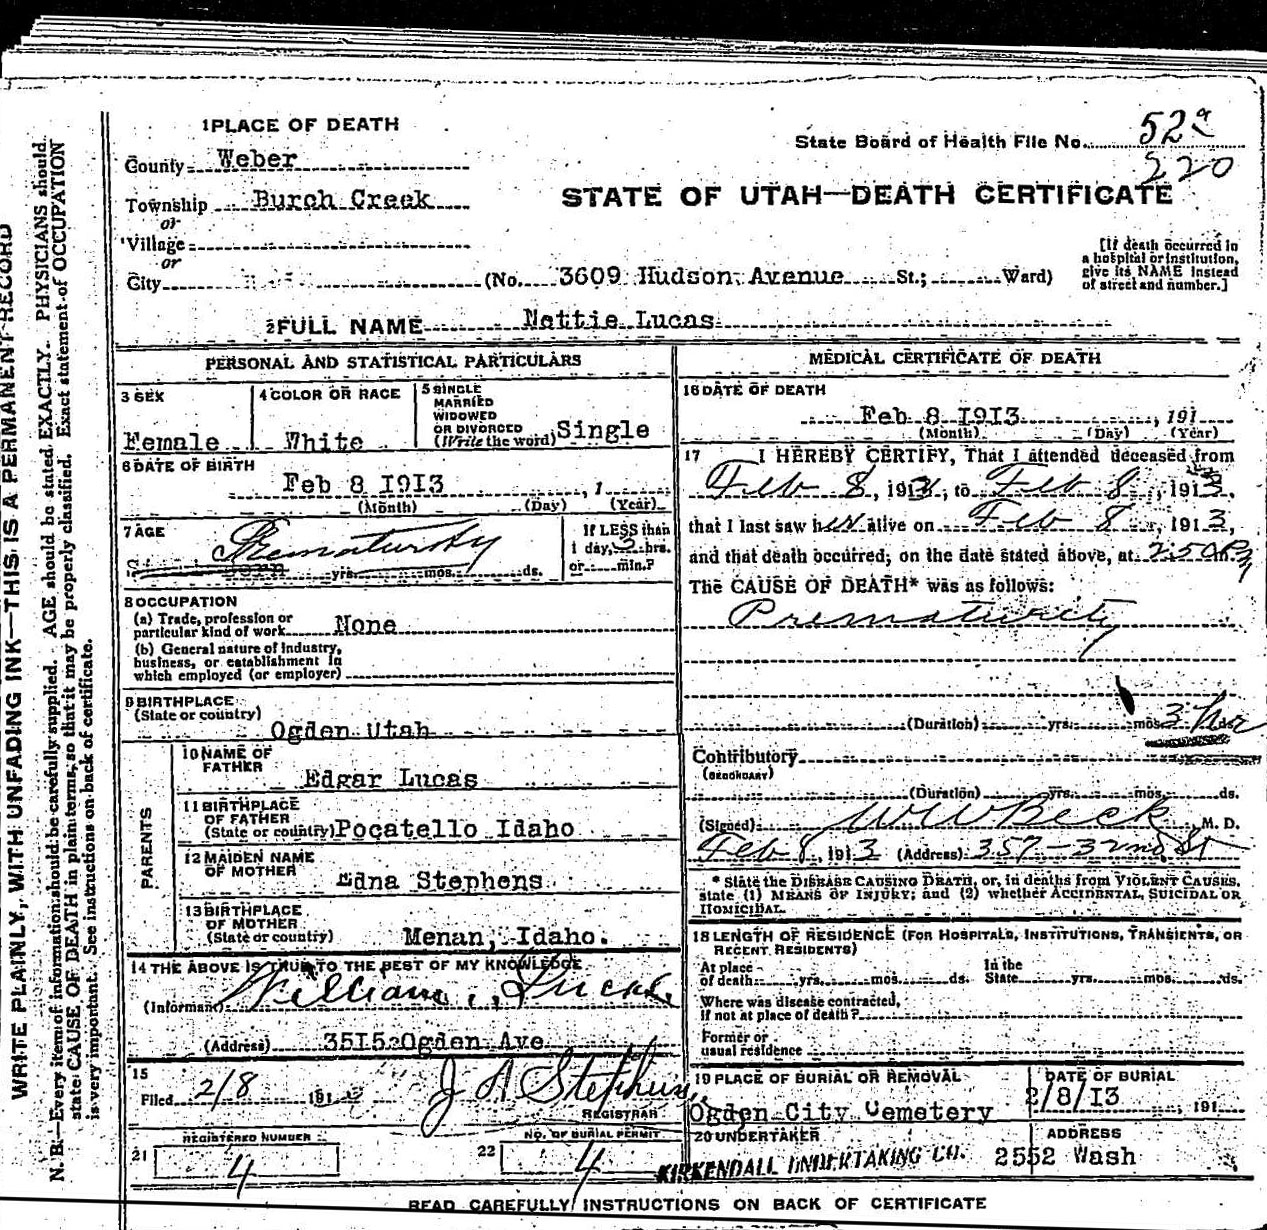 WRITE PLAINLY, WITH UNFADING INK—THIS IS A PERMANENT RECORD
N. B.—Every item of information should be carefully supplied. AGE should be stated EXACTLY. PHYSICIANS should
state CAUSE OF DEATH in plain terms, so that it may be properly classified. Exact statement of OCCUPATION
is very important. See instructions on back of certificate.
1 PLACE OF DEATH
County Weber
Township Burch Creek
or
Village
or
City (No. 3609 Hudson Avenue St.; Ward)
State Board of Health File No. 52a
220
STATE OF UTAH—DEATH CERTIFICATE
[If death occurred in
a hospital or institution,
give its NAME instead
of street and number.]
2 FULL NAME Nettie Lucas
PERSONAL AND STATISTICAL PARTICULARS
3 SEX
Female
4 COLOR OR RACE
White
5 SINGLE
MARRIED
WIDOWED
OR DIVORCED
(Write the word) Single
6 DATE OF BIRTH
Feb 8 1913 , 1
(Month) (Day) (Year)
7 AGE
Prematurity
Born yrs. mos. ds.
If LESS than
1 day, 3 hrs.
or min.?
8 OCCUPATION
(a) Trade, profession or
particular kind of work None
(b) General nature of Industry,
business, or establishment in
which employed (or employer)
9 BIRTHPLACE
(State or country)
Ogden Utah
PARENTS
10 NAME OF
FATHER
Edgar Lucas
11 BIRTHPLACE
OF FATHER
(State or country) Pocatello Idaho
12 MAIDEN NAME
OF MOTHER
Edna Stephens
13 BIRTHPLACE
OF MOTHER
(State or country) Menan, Idaho.
14 THE ABOVE IS TRUE TO THE BEST OF MY KNOWLEDGE
(Informant) William Lucas
(Address) 3515 Ogden Ave
15
Filed 2/8 191
J A Stephens
REGISTRAR
REGISTERED NUMBER
21 4
NO. OF BURIAL PERMIT
22 4
MEDICAL CERTIFICATE OF DEATH
16 DATE OF DEATH
Feb 8 1913 , 191
(Month) (Day) (Year)
17 I HEREBY CERTIFY, That I attended deceased from
Feb 8, 1913, to Feb 8, 1913,
that I last saw her alive on Feb 8, 1913,
and that death occurred, on the date stated above, at
The CAUSE OF DEATH* was as follows:
Prematurity
(Duration) yrs. mos. 3 hrs ds.
Contributory
(SECONDARY)
(Duration) yrs. mos. ds.
(Signed) W W Beck M. D.
Feb 8, 1913 (Address) 357-32nd St
* State the DISEASE CAUSING DEATH, or, in deaths from VIOLENT CAUSES,
state (1) MEANS OF INJURY; and (2) whether ACCIDENTAL, SUICIDAL OR
HOMICIDAL.
18 LENGTH OF RESIDENCE (FOR HOSPITALS, INSTITUTIONS, TRANSIENTS, OR
RECENT RESIDENTS)
At place
of death yrs. mos. ds. In the
State yrs. mos. ds.
Where was disease contracted,
if not at place of death?
Former or
usual residence
19 PLACE OF BURIAL OR REMOVAL
Ogden City Cemetery
DATE OF BURIAL
2/8/13 , 191
20 UNDERTAKER
KIRKENDALL UNDERTAKING CO.
ADDRESS
2552 Wash
READ CAREFULLY INSTRUCTIONS ON BACK OF CERTIFICATE